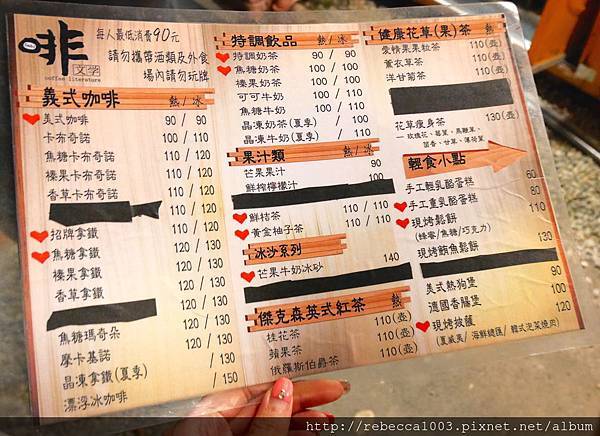 啡
文学
coffee literature
每人最低消費90元
請勿攜帶酒類及外食
場內請勿玩牌
義式咖啡 熱/冰
美式咖啡 90 / 90
卡布奇諾 100 / 110
焦糖卡布奇諾 110 / 120
榛果卡布奇諾 110 / 120
香草卡布奇諾 110 / 120
招牌拿鐵 110 / 120
焦糖拿鐵 120 / 130
榛果拿鐵 120 / 130
香草拿鐵 120 / 130
焦糖瑪奇朵 120 / 130
摩卡基諾 120 / 130
晶凍拿鐵(夏季) / 130
漂浮冰咖啡 / 150
特調飲品 熱/冰
特調奶茶 90 / 90
焦糖奶茶 100 / 100
榛果奶茶 100 / 100
可可牛奶 100 / 100
焦糖牛奶 100 / 110
晶凍奶茶(夏季) / 100
晶凍牛奶(夏季) / 110
果汁類 熱/冰
芒果果汁 90
鮮榨檸檬汁 100
鮮桔茶 110 / 110
黃金柚子茶 110 / 110
冰沙系列
芒果牛奶冰砂 140
傑克森英式紅茶 熱
桂花茶 110(壺)
蘋果茶 110(壺)
俄羅斯伯爵茶 110(壺)
健康花草(果)茶 熱
愛情果果粒茶 110(壺)
薰衣草茶 110(壺)
洋甘菊茶 110(壺)
花草瘦身茶 110(壺)
—玫瑰花、莓葉、馬鞭草、
茴香、甘草、薄荷葉
輕食小點
手工輕乳酪蛋糕 60
手工重乳酪蛋糕 80
現烤鬆餅 100
(蜂蜜/焦糖/巧克力)
現烤鮪魚鬆餅 130
美式熱狗堡 90
德國香腸堡 100
現烤披薩 130
(夏威夷/海鮮總匯/韓式泡菜燒肉)
http://rebecca1003.pixnet.net/album